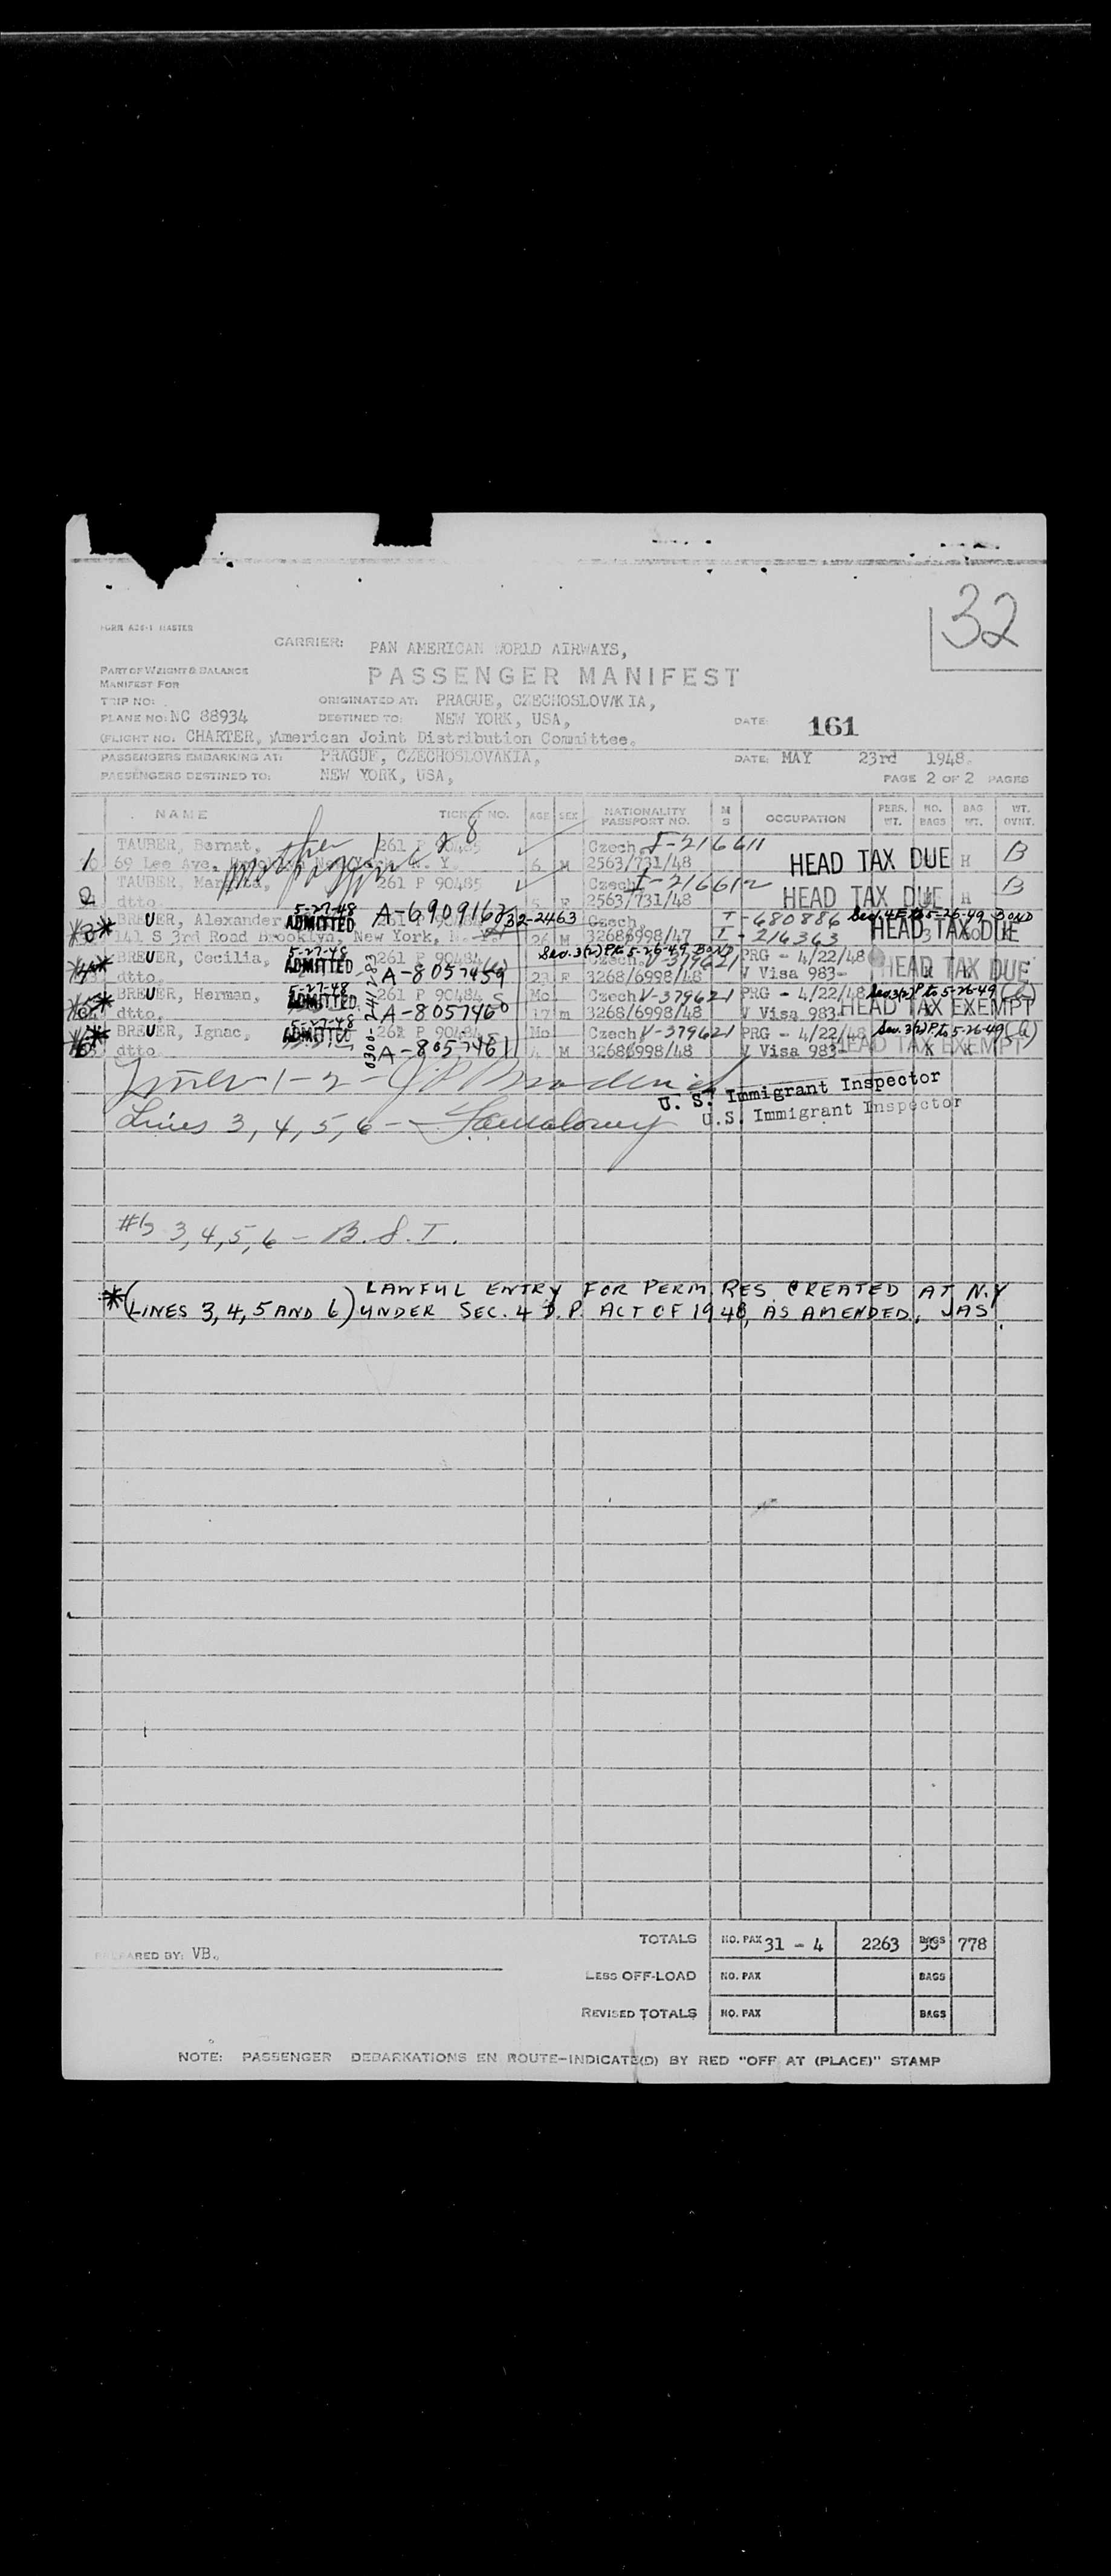 32
FORM A26-1 MASTER
CARRIER: PAN AMERICAN WORLD AIRWAYS,
PART OF WEIGHT & BALANCE
MANIFEST FOR
PASSENGER MANIFEST
TRIP NO:
ORIGINATED AT: PRAGUE, CZECHOSLOVAKIA,
PLANE NO: NC 88934
DESTINED TO: NEW YORK, USA,
DATE: 161
FLIGHT NO. CHARTER, American Joint Distribution Committee.
PASSENGERS EMBARKING AT: PRAGUE, CZECHOSLOVAKIA,
DATE: MAY 23rd 1948.
PASSENGERS DESTINED TO: NEW YORK, USA,
PAGE 2 OF 2 PAGES
NAME TICKET NO. AGE SEX NATIONALITY PASSPORT NO. M S OCCUPATION PERS. WT. NO. BAGS BAG WT. WT. OVHT.
TAUBER, Bernat, 261 P 90485 Czech. I-216611
1 69 Lee Ave, Brooklyn New York, N. Y. 6 M 2563/731/48 HEAD TAX DUE B
TAUBER, 261 P 90485 Czech. I-216612 HEAD TAX DUE B
2 dtto 5 F 2563/731/48
5-27-48 ADMITTED
BREUER, Alexander A-6909162 Czech. T-680886 Sec. 4E to 5-26-49 BOND
3 141 S 3rd Road Brooklyn, New York, 26 M 32686998/47 I-216363 HEAD TAX DUE
5-27-48 ADMITTED Sec. 3(2) P to 5-26-49 BOND
BREUER, Cecilia, 261 P 90484 Czech. V-379621 PRG - 4/22/48
4 dtto. A-8057459 23 F 3268/6998/48 V Visa 983- HEAD TAX DUE
5-27-48 ADMITTED
BREUER, Herman, 261 P 90484 Mo Czech V-379621 PRG - 4/22/48 Sec 3(2) P to 5-26-49
dtto, A-8057460 17 m 3268/6998/48 V Visa 983- HEAD TAX EXEMPT
5-27-48 ADMITTED
BREUER, Ignac, 261 P 90484 Mo Czech V-379621 PRG - 4/22/48 Sec. 3(2) P. to 5-26-49
dtto A-8057461 4 M 32686998/48 V Visa 983- HEAD TAX EXEMPT
0300-241283
Lines 1-2 -
U. S. Immigrant Inspector
Lines 3, 4, 5, 6 -
U.S. Immigrant Inspector
3, 4, 5, 6 - B. S. I.
*(LINES 3, 4, 5 AND 6) LAWFUL ENTRY FOR PERM. RES. CREATED AT N.Y
UNDER SEC. 4 D.P. ACT OF 1948, AS AMENDED. JAS.
TOTALS NO. PAX 31 - 4 2263 BAGS 778
PREPARED BY: VB.
LESS OFF-LOAD NO. PAX BAGS
REVISED TOTALS NO. PAX BAGS
NOTE: PASSENGER DEBARKATIONS EN ROUTE-INDICATE(D) BY RED "OFF AT (PLACE)" STAMP